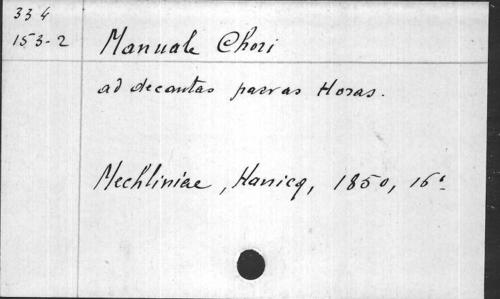 334
153-2
Manuale Chori
ad decantas parvas Horas.
Mechliniae, Hanicq, 1850, 16º